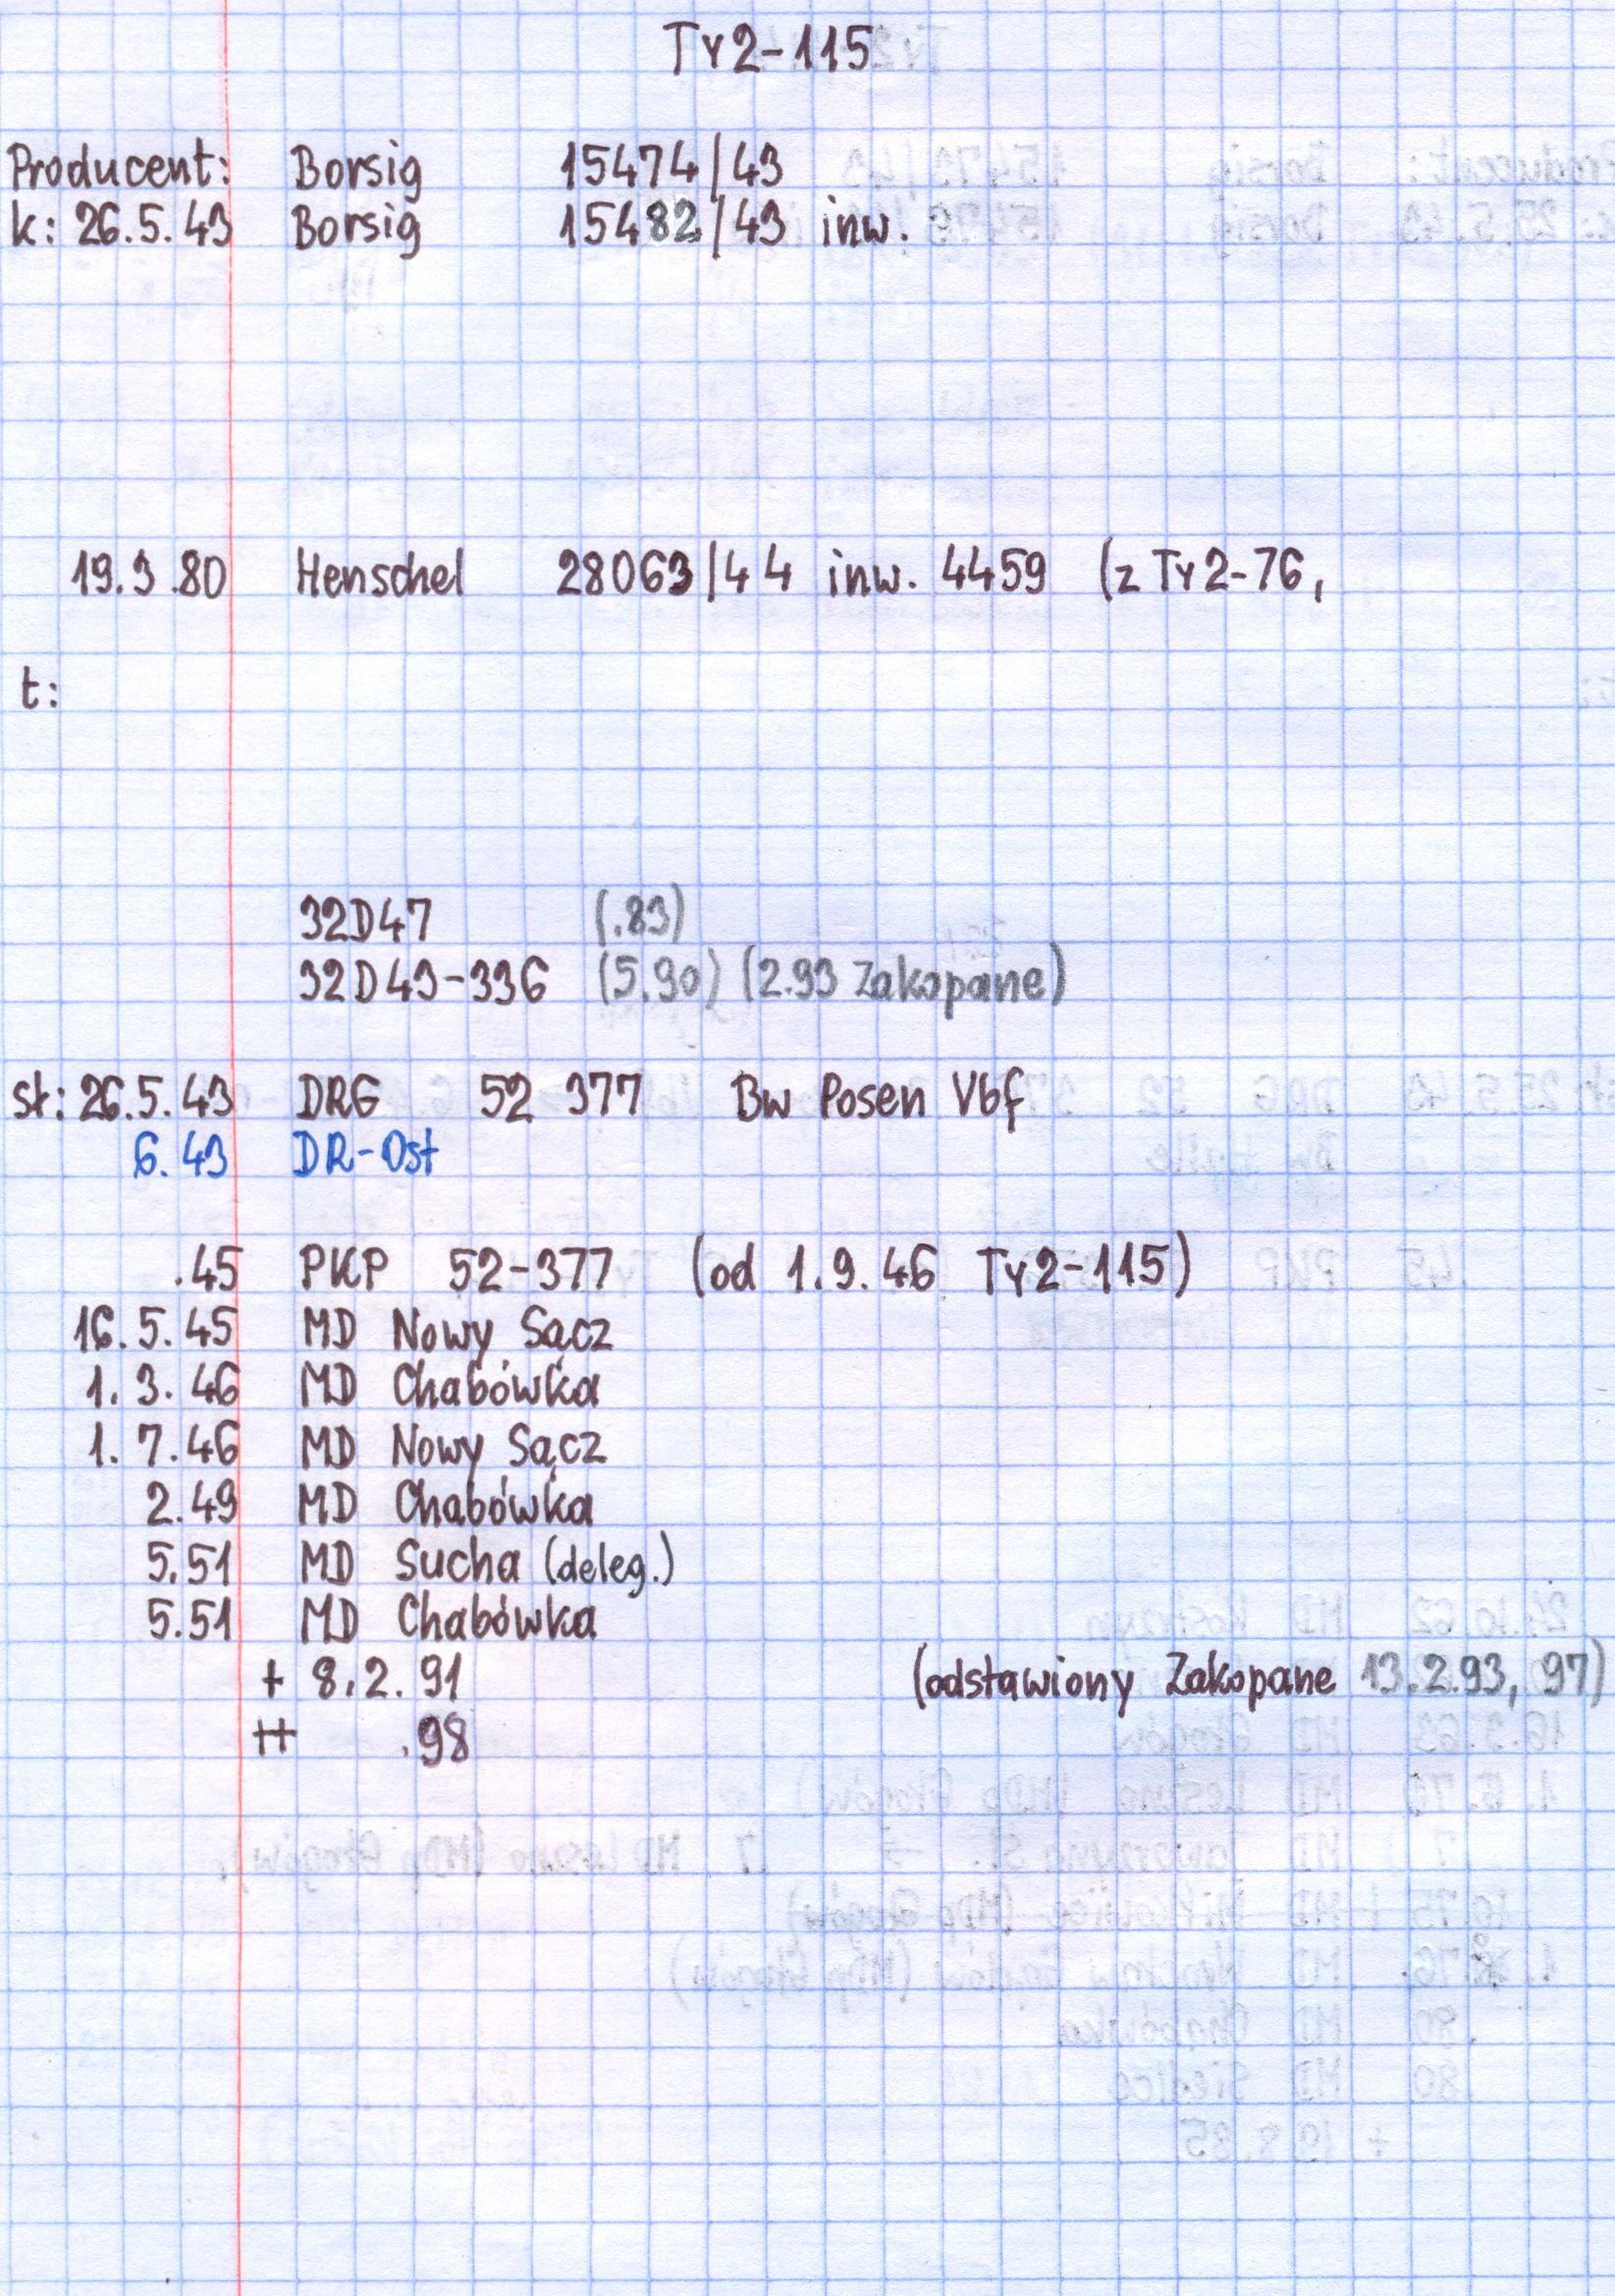 Ty2-115
Producent: Borsig 15474/43
k: 26.5.43 Borsig 15482/43 inw.
19.3.80 Henschel 28063/44 inw. 4459 (z Ty2-76,
t:
32D47 (.83)
32D43-336 (5.90) (2.93 Zakopane)
st: 26.5.43 DRG 52 377 Bw Posen Vbf
6.43 DR-Ost
.45 PKP 52-377 (od 1.9.46 Ty2-115)
16.5.45 MD Nowy Sącz
1.3.46 MD Chabówka
1.7.46 MD Nowy Sącz
2.49 MD Chabówka
5.51 MD Sucha (deleg.)
5.51 MD Chabówka
+ 8.2.91 (odstawiony Zakopane 13.2.93, 97)
++ .98